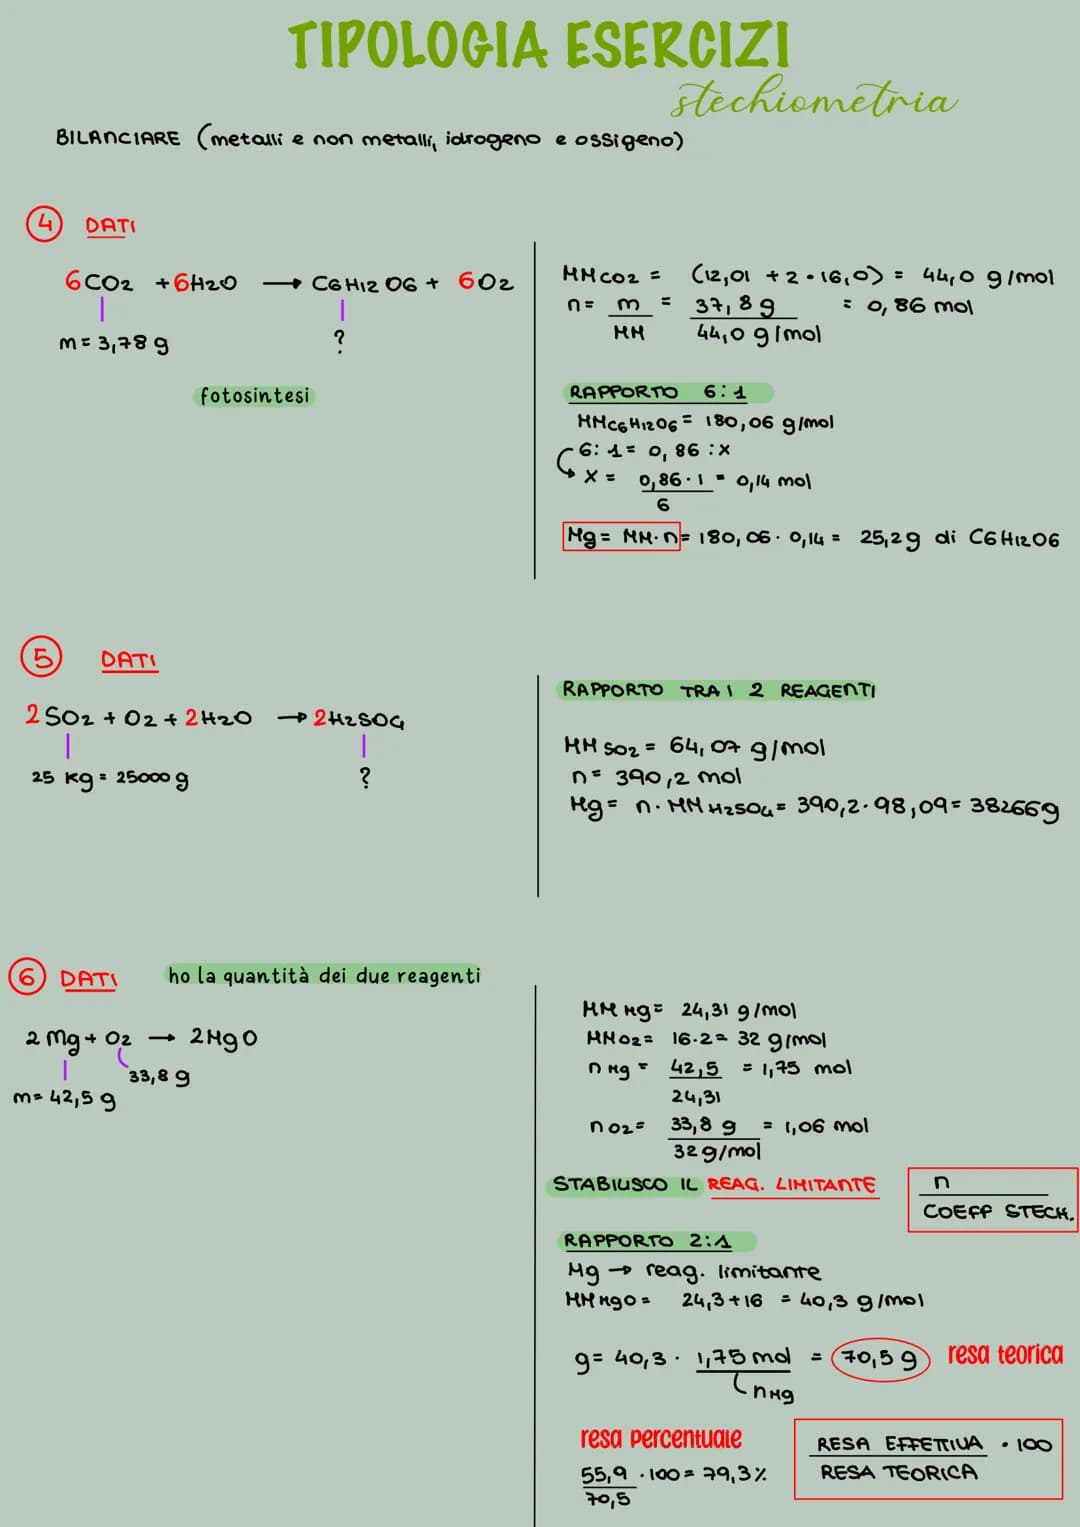 TIPOLOGIA ESERCIZI
stechiometria
BILANCIARE (metalli e non metalli, idrogeno e ossigeno)
4 DATI
6CO2 + 6H2O → C6H12O6 + 6O2
m = 3,78 g ?
fotosintesi
MMCO2 = (12,01 + 2 • 16,0) = 44,0 g/mol
n = m = 37,8 g = 0,86 mol
MM 44,0 g/mol
RAPPORTO 6:1
MMC6H12O6 = 180,06 g/mol
6:1 = 0,86 : x
x = 0,86 · 1 = 0,14 mol
6
Mg = MM · n = 180,06 · 0,14 = 25,2 g di C6H12O6
5 DATI
2SO2 + O2 + 2H2O → 2H2SO4
25 kg = 25000 g ?
RAPPORTO TRA I 2 REAGENTI
MM SO2 = 64,07 g/mol
n = 390,2 mol
Mg = n · MM H2SO4 = 390,2 · 98,09 = 38266g
6 DATI ho la quantità dei due reagenti
2 Mg + O2 → 2MgO
33,8 g
m = 42,5 g
MM Mg = 24,31 g/mol
MMO2 = 16·2 = 32 g/mol
n Mg = 42,5 = 1,75 mol
24,31
n O2 = 33,8 g = 1,06 mol
32 g/mol
STABILISCO IL REAG. LIMITANTE
n
COEFF STECH.
RAPPORTO 2:1
Mg → reag. limitante
MM MgO = 24,3 + 16 = 40,3 g/mol
g = 40,3 · 1,75 mol = 70,5 g resa teorica
n Mg
resa percentuale
55,9 · 100 = 79,3%
70,5
RESA EFFETTIVA • 100
RESA TEORICA